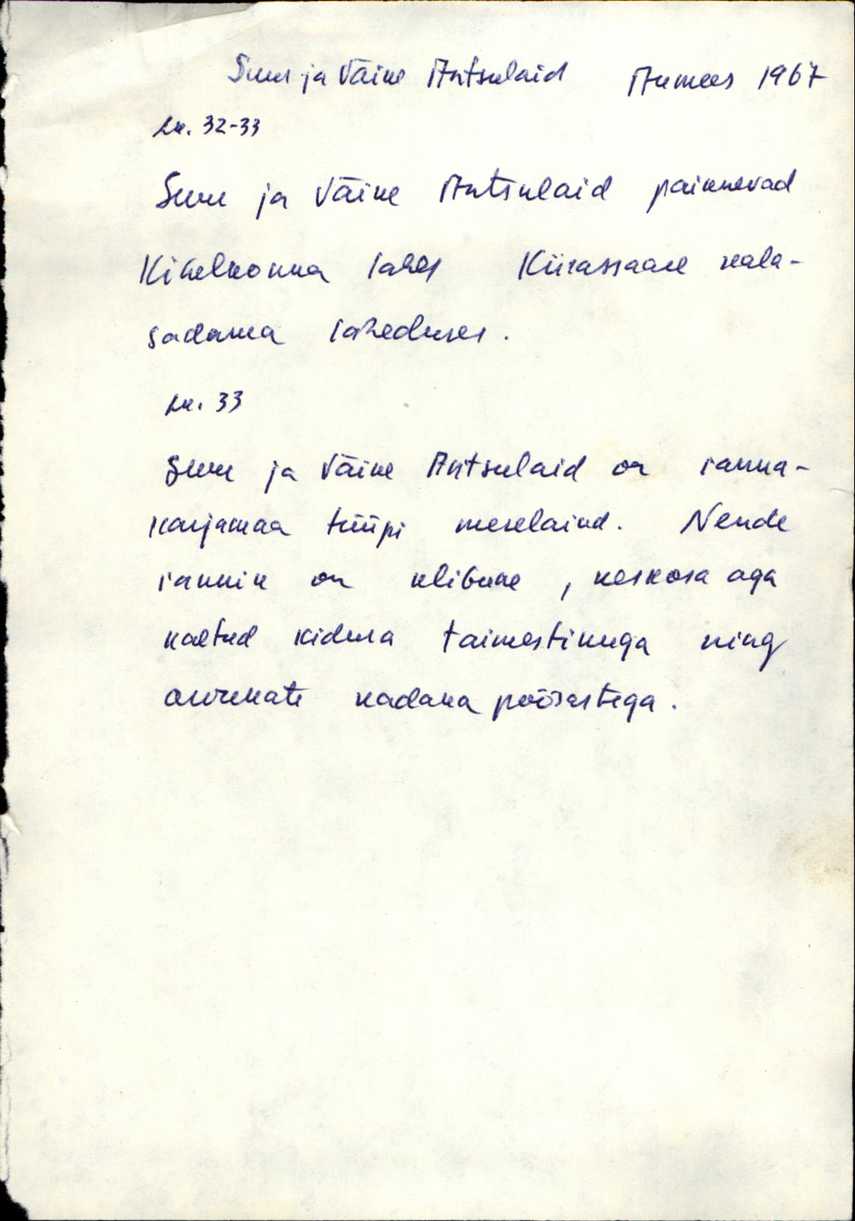 Suur ja Väike Antsulaid Aumees 1967
Lk. 32-33
Suur ja Väike Antsulaid paiknevad
Kihelkonna lahes Kiirassaare kala-
sadama läheduses.
Lk. 33
Suur ja Väike Antsulaid on ranna-
karjamaa tüüpi merelaiud. Nende
rannik on klibune, keskosa aga
kaetud kidura taimestikuga ning
arvukate kadaka põõsastega.